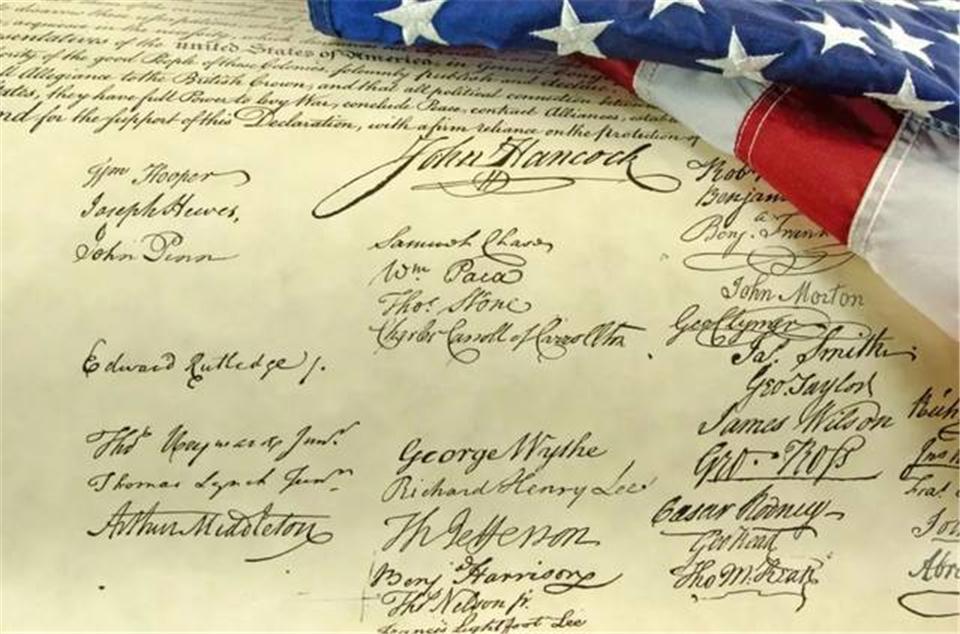 disavow these usurpations
acquiesce in the necessity, which
Representatives of the united States of America, in General Congress
authority of the good People of these Colonies, solemnly publish and declare
all Allegiance to the British Crown, and that all political connection between
States, they have full Power to levy War, conclude Peace, contract Alliances, establ
and for the support of this Declaration, with a firm reliance on the protection of
John Hancock
Wm Hooper
Joseph Hewes,
John Penn
Edward Rutledge /.
Thos Heyward Junr.
Thomas Lynch Junr.
Arthur Middleton
Samuel Chase
Wm Paca
Thos. Stone
Charles Carroll of Carrollton
George Wythe
Richard Henry Lee
Th Jefferson
Benj Harrison
Thos Nelson jr.
Francis Lightfoot Lee
Rob
Benjam
Benj. Frank
John Morton
Geo Clymer
Jas. Smith
Geo. Taylor
James Wilson
Geo. Ross
Caesar Rodney
Geo Read
Tho M:Kean
Abra